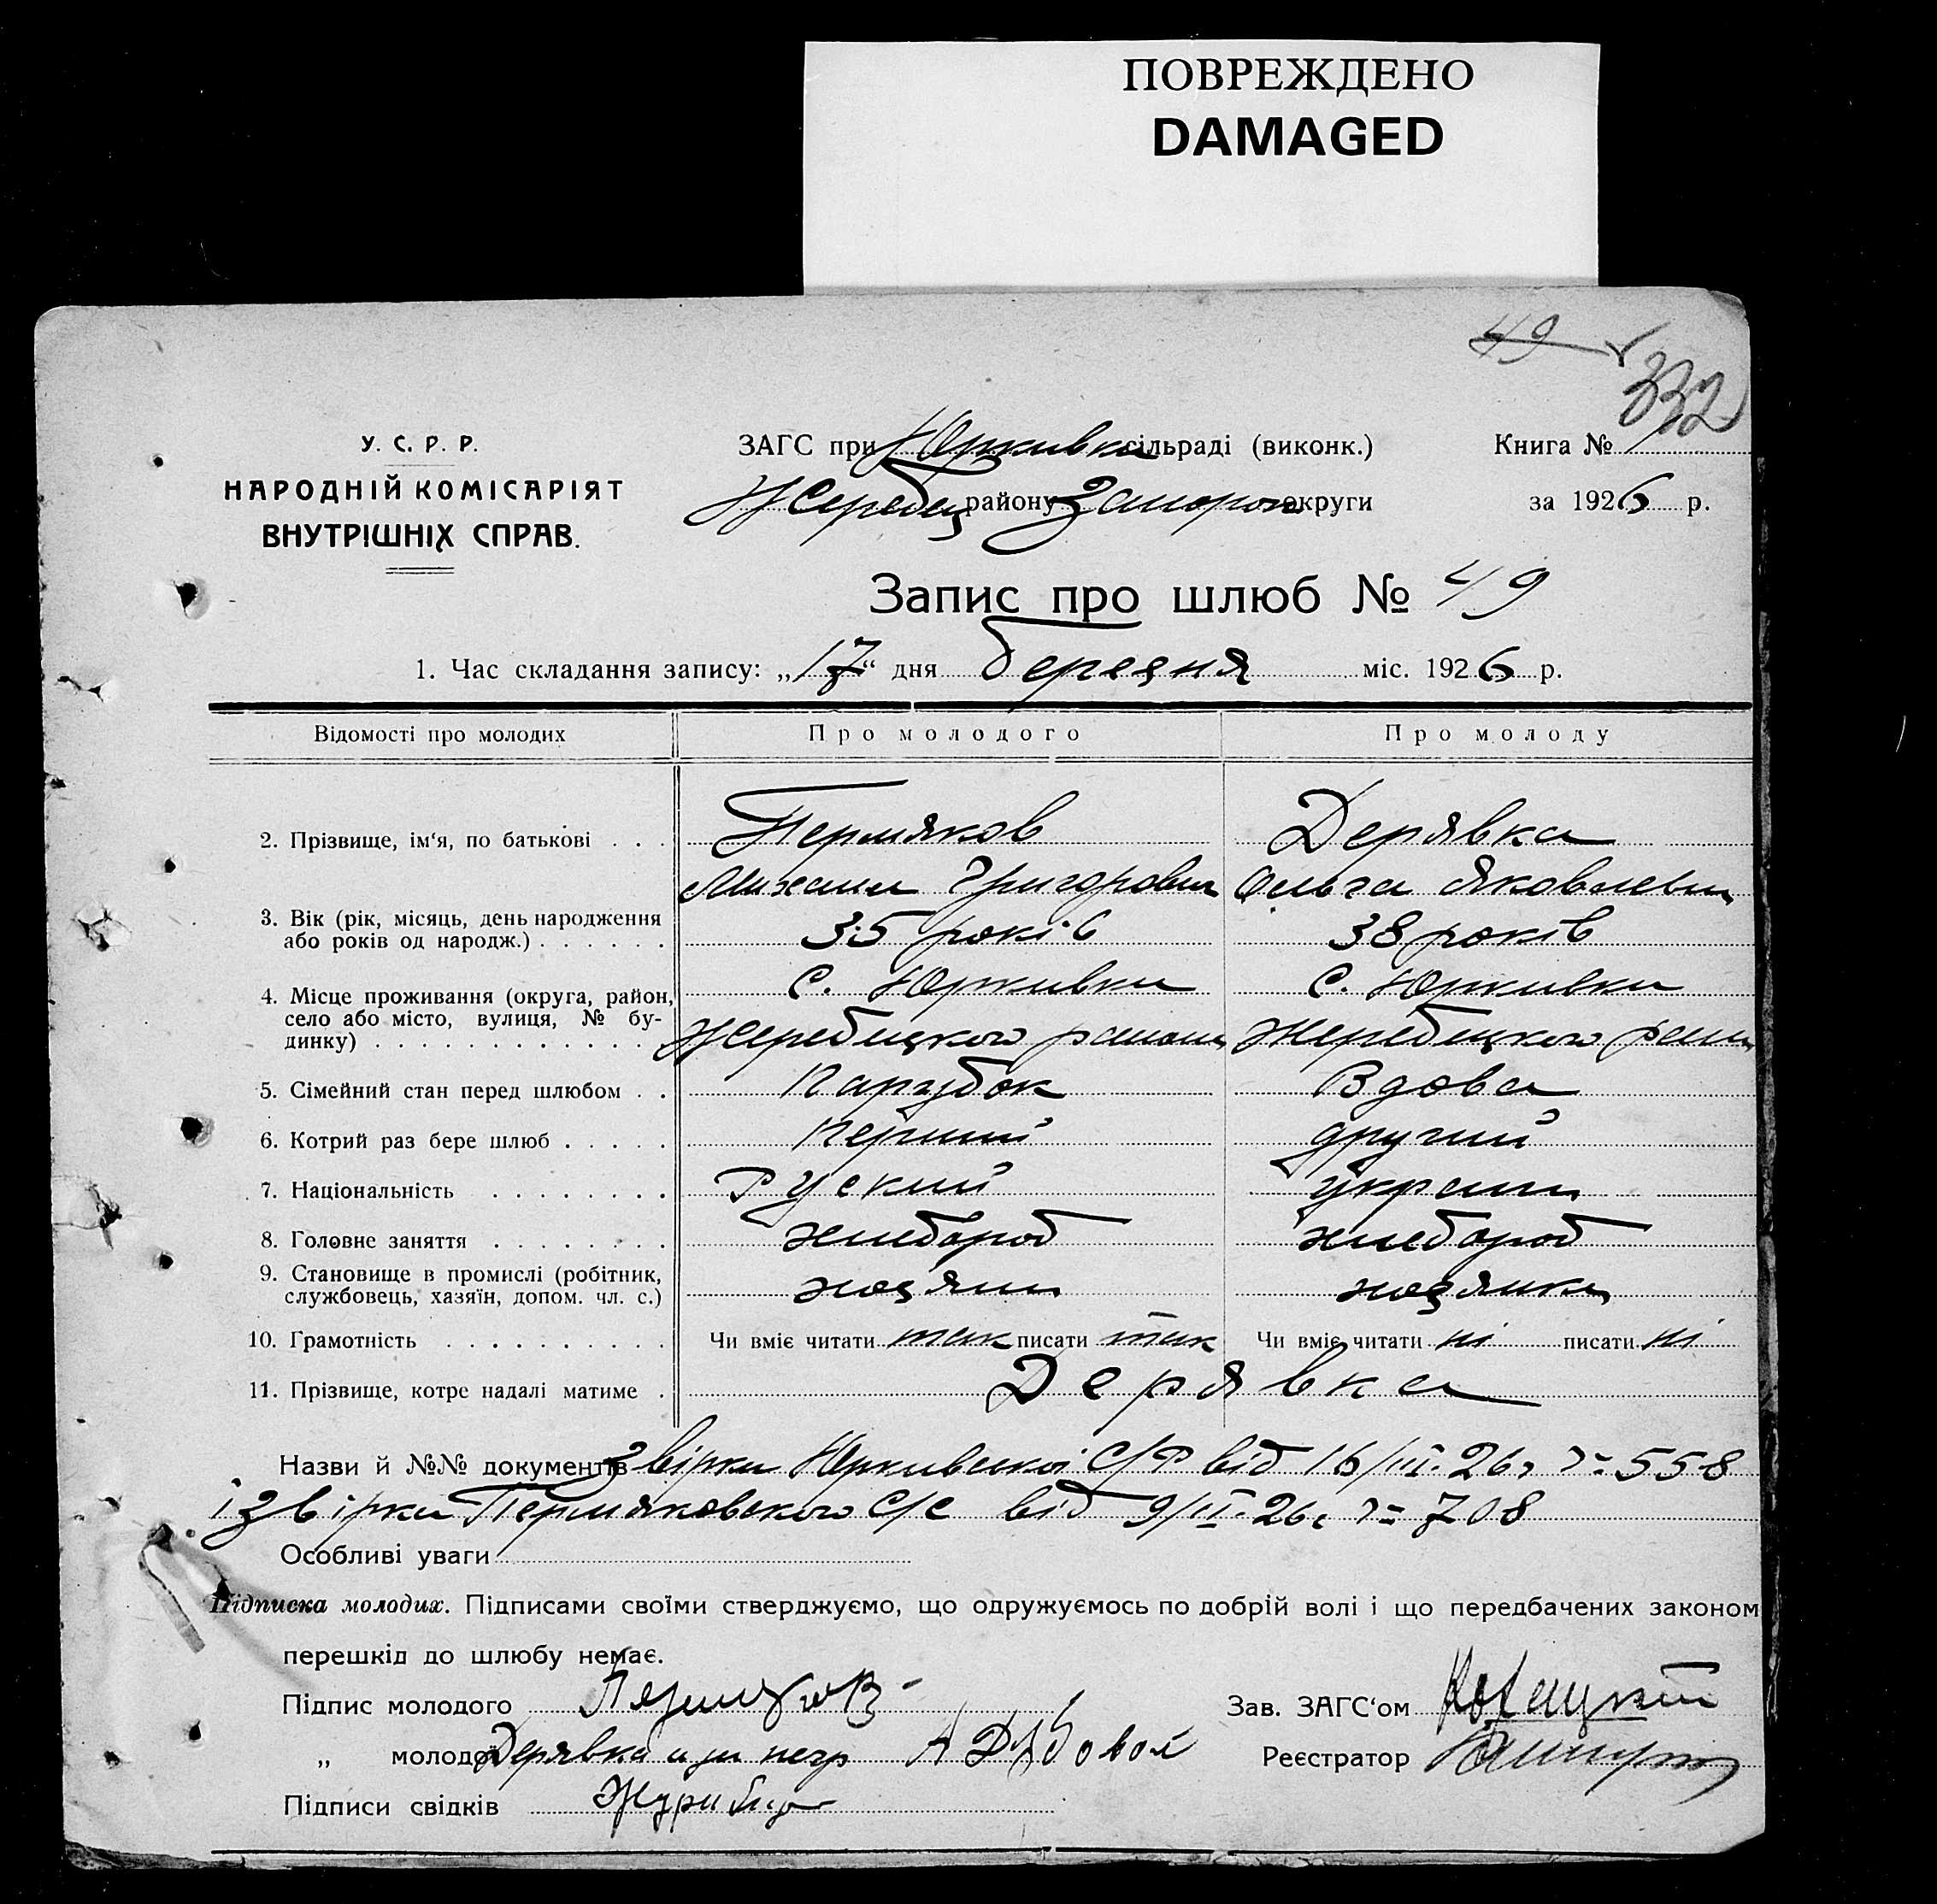 ПОВРЕЖДЕНО
DAMAGED
49
332
У. С. Р. Р.
НАРОДНІЙ КОМІСАРІЯТ
ВНУТРІШНІХ СПРАВ.
ЗАГС при Юркивка сільраді (виконк.)
Книга №
Жеребец району Запорож округи
за 1926 р.
Запис про шлюб № 49
1. Час складання запису: „17“ дня березня міс. 1926 р.
Відомості про молодих
Про молодого
Про молоду
2. Прізвище, ім‘я, по батькові . . .
Пермяков
Дерявка
Михаил Григорович
Ольга Яковлевн
3. Вік (рік, місяць, день народження
або років од народж.) . . . . . .
35 років
38 років
4. Місце проживання (округа, район,
село або місто, вулиця, № бу-
динку) . . . . . . . . . . . . .
с. Юркивки
с. Юркивки
Жеребецкого района
Жеребецкого раи
5. Сімейний стан перед шлюбом . .
Парубок
Вдова
6. Котрий раз бере шлюб . . . . .
перший
другий
7. Національність . . . . . . . .
Руский
украин
8. Головне заняття . . . . . . . .
хлебороб
хлебороб
9. Становище в промислі (робітник,
службовець, хазяїн, допом. чл. с.)
хозяин
хозяика
10. Грамотність . . . . . . . . . .
Чи вміє читати так писати так
Чи вміє читати ні писати ні
11. Прізвище, котре надалі матиме .
Дерявка
Назви й №№ документів звірки Юркивської С/Р від 16/III-26 г № 558
і звірки Пермяковского С/С від 9/II-26 г № 708
Особливі уваги
Підписка молодих. Підписами своїми стверджуємо, що одружуємось по добрій волі і що передбачених законом
перешкід до шлюбу немає.
Підпис молодого Пермяков
Зав. ЗАГС‘ом
„ молодої Дерявка а за негр
Реєстратор
Підписи свідків